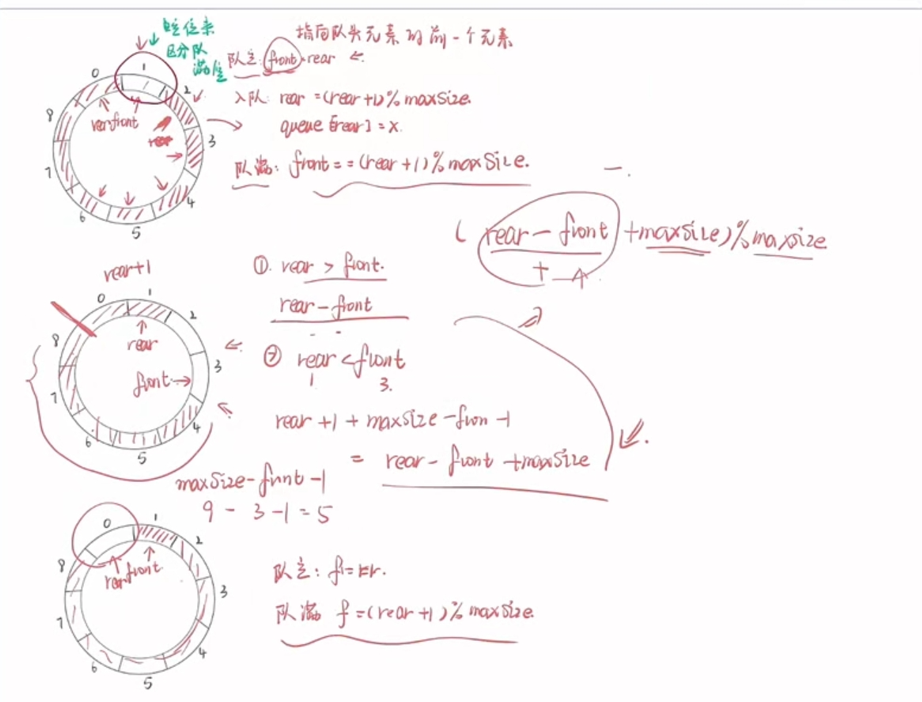 空位来
区分队
满/空
指向队头元素的前一个元素
队空: front = rear
入队: rear = (rear+1)% maxSize.
queue [rear] = x.
队满: front == (rear+1)% maxSize.
0 1 2 3 4 5 6 7 8
rear front
rear
( rear - front + maxSize)% maxsize
+ -
rear+1
0 1 2 3 4 5 6 7 8
rear
front
① rear > front.
rear - front
② rear < front
1 3.
rear +1 + maxSize - fron -1
= rear - front + maxSize
maxSize - front -1
9 - 3 -1 = 5
0 1 2 3 4 5 6 7 8
rear front
队空: f == r.
队满 f = (rear+1)% maxSize.